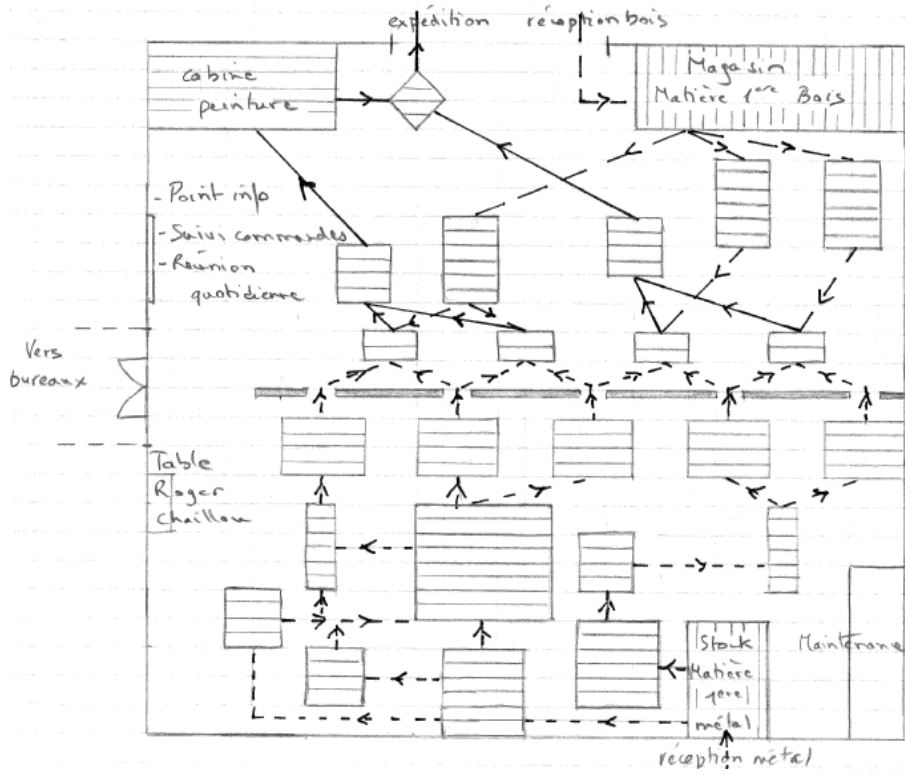 expédition réception bois
cabine
peinture
Magasin
Matière 1ere Bois
- Point info
- Suivi commandes
- Réunion
quotidienne
Vers
bureaux
Table
Roger
Chaillou
Stock
Matière
1ere
métal
Maintenance
réception métal